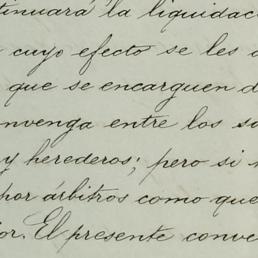 tinuará la liquidac
cuyo efecto se les
que se encarguen d
nvenga entre los so
y herederos; pero si
por árbitros como que
or. El presente conve